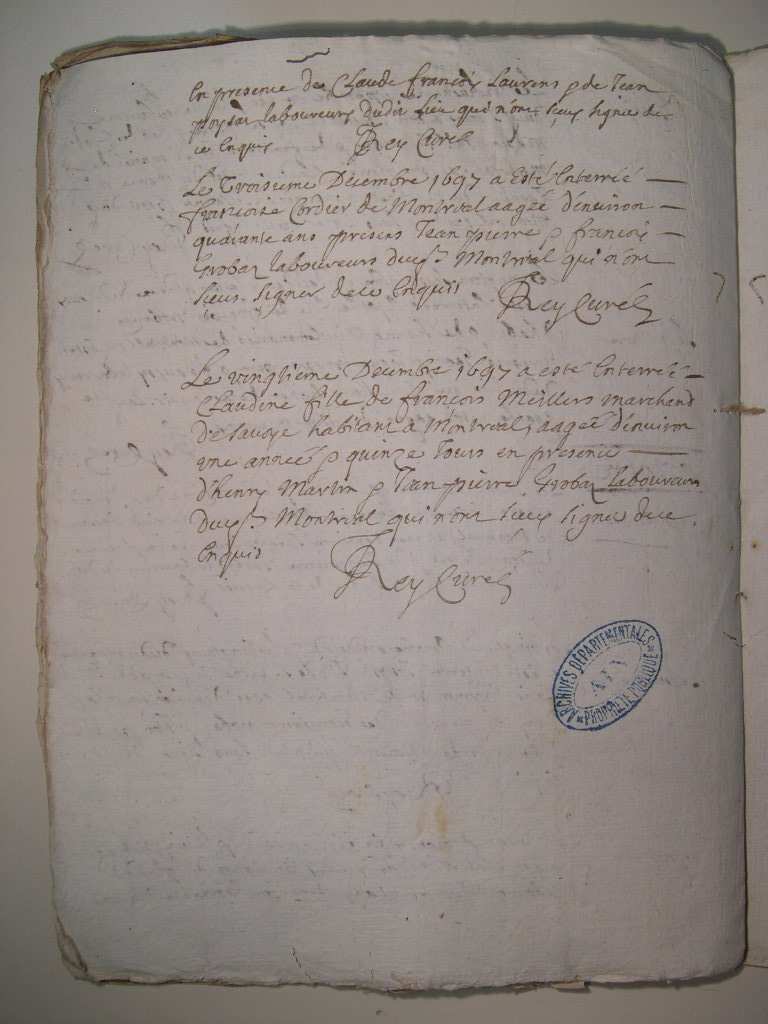 En presence de Claude françois Laurens & de Jean
laboureurs dudit lieu qui n'ont sceus signe de
ce Enquis Rey Curé
Le Troisieme Decembre 1697 a esté Enterreé
francoise Cordier de Montreal aageé d'enuiron
quarante ans presens Jean pierre & francois
Grobaz laboureurs dud. Montreal qui n'ont
sceus signer de ce Enquis Rey Curé
Le vingtieme Decembre 1697 a esté Enterreé
Claudine fille de francois Meillers marchand
de Sauoye habitant a Montreal, aageé d'enuiron
une anneé & quinze Jours en presence
d'henry Martin & Jean pierre Grobaz laboureurs
dud. Montreal qui n'ont sceus signe de ce
Enquis
Rey Curé
ARCHIVES DÉPARTEMENTALES
AIN
PROPRIÉTÉ PUBLIQUE